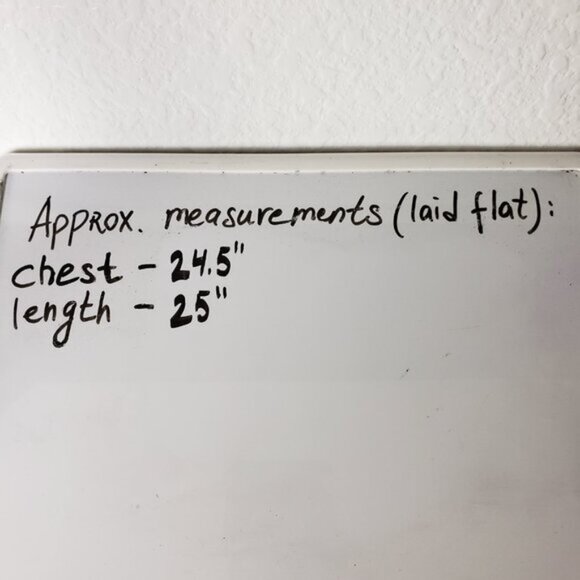 Approx. measurements (laid flat):
chest - 24.5"
length - 25"